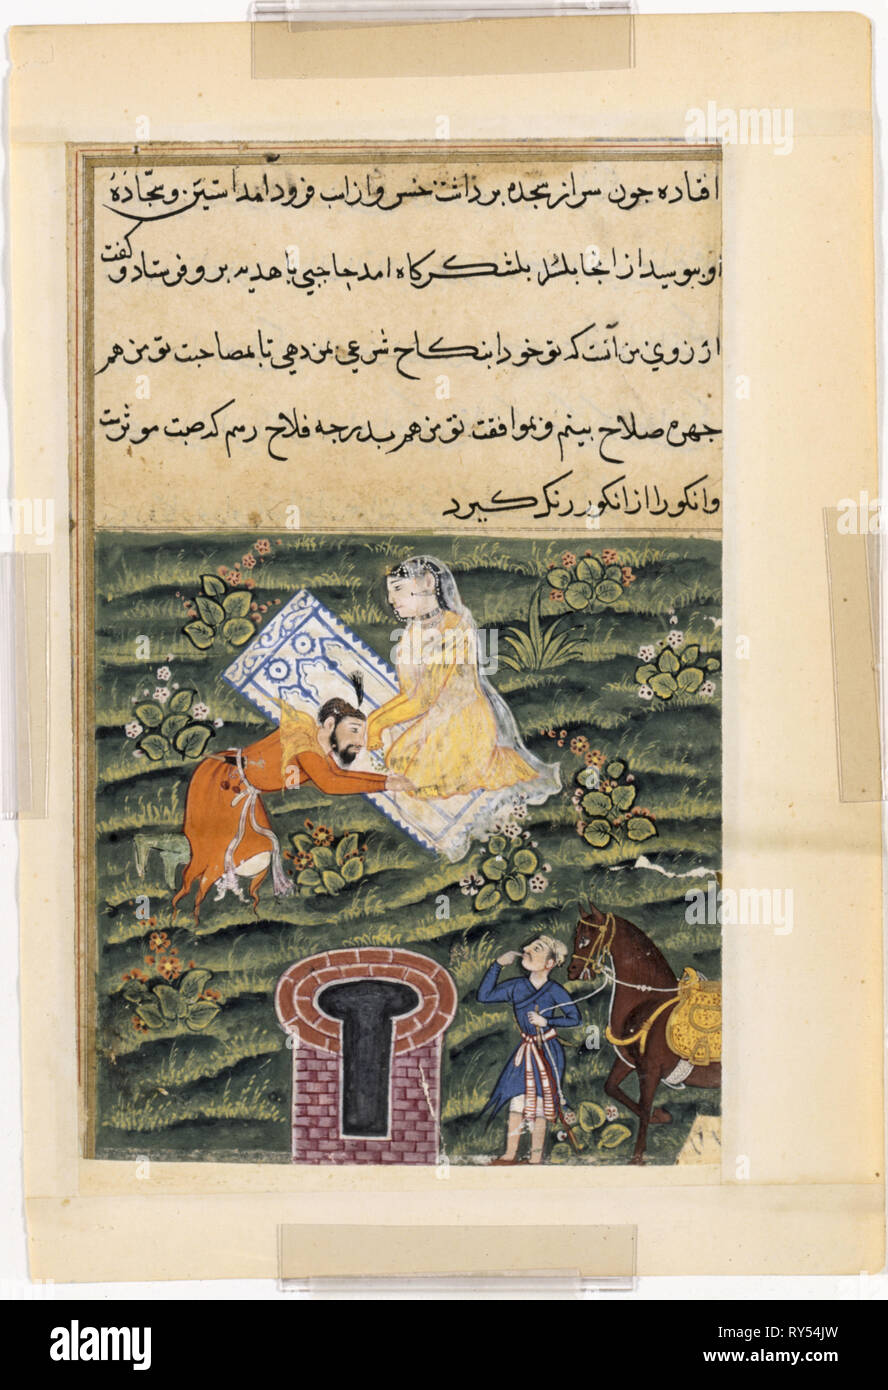 افتاده جون سر از سجده برداشت خسرو از اسب فرود امد استین و سجّادهٔ
او ببوسید از انجا بلشکرکاه امد حاجبی با هدیه برو فرستاد و کفت
ارزوی من آنست که تو خود را بنکاح شرعی بمن دهی تا بمصاحبت تو من هم
جهره صلاح بینم و بموافقت تو من هم بدرجه فلاح رسم که صحبت موثرست
وانکور را از انکور رنک کیرد
a
alamy
Image ID: RY54JW
www.alamy.com